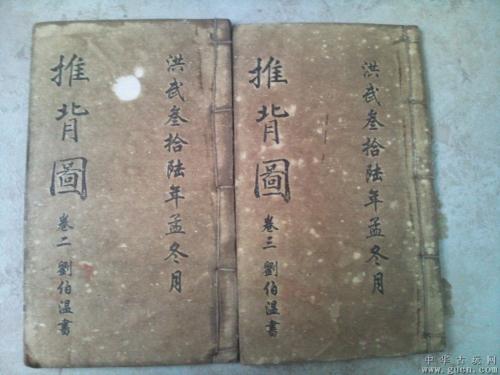 洪武叁拾陆年孟冬月
推背圖
卷三 劉伯溫書
洪武叁拾陆年孟冬月
推背圖
卷二 劉伯溫書
中华古玩网
www.gucn.com